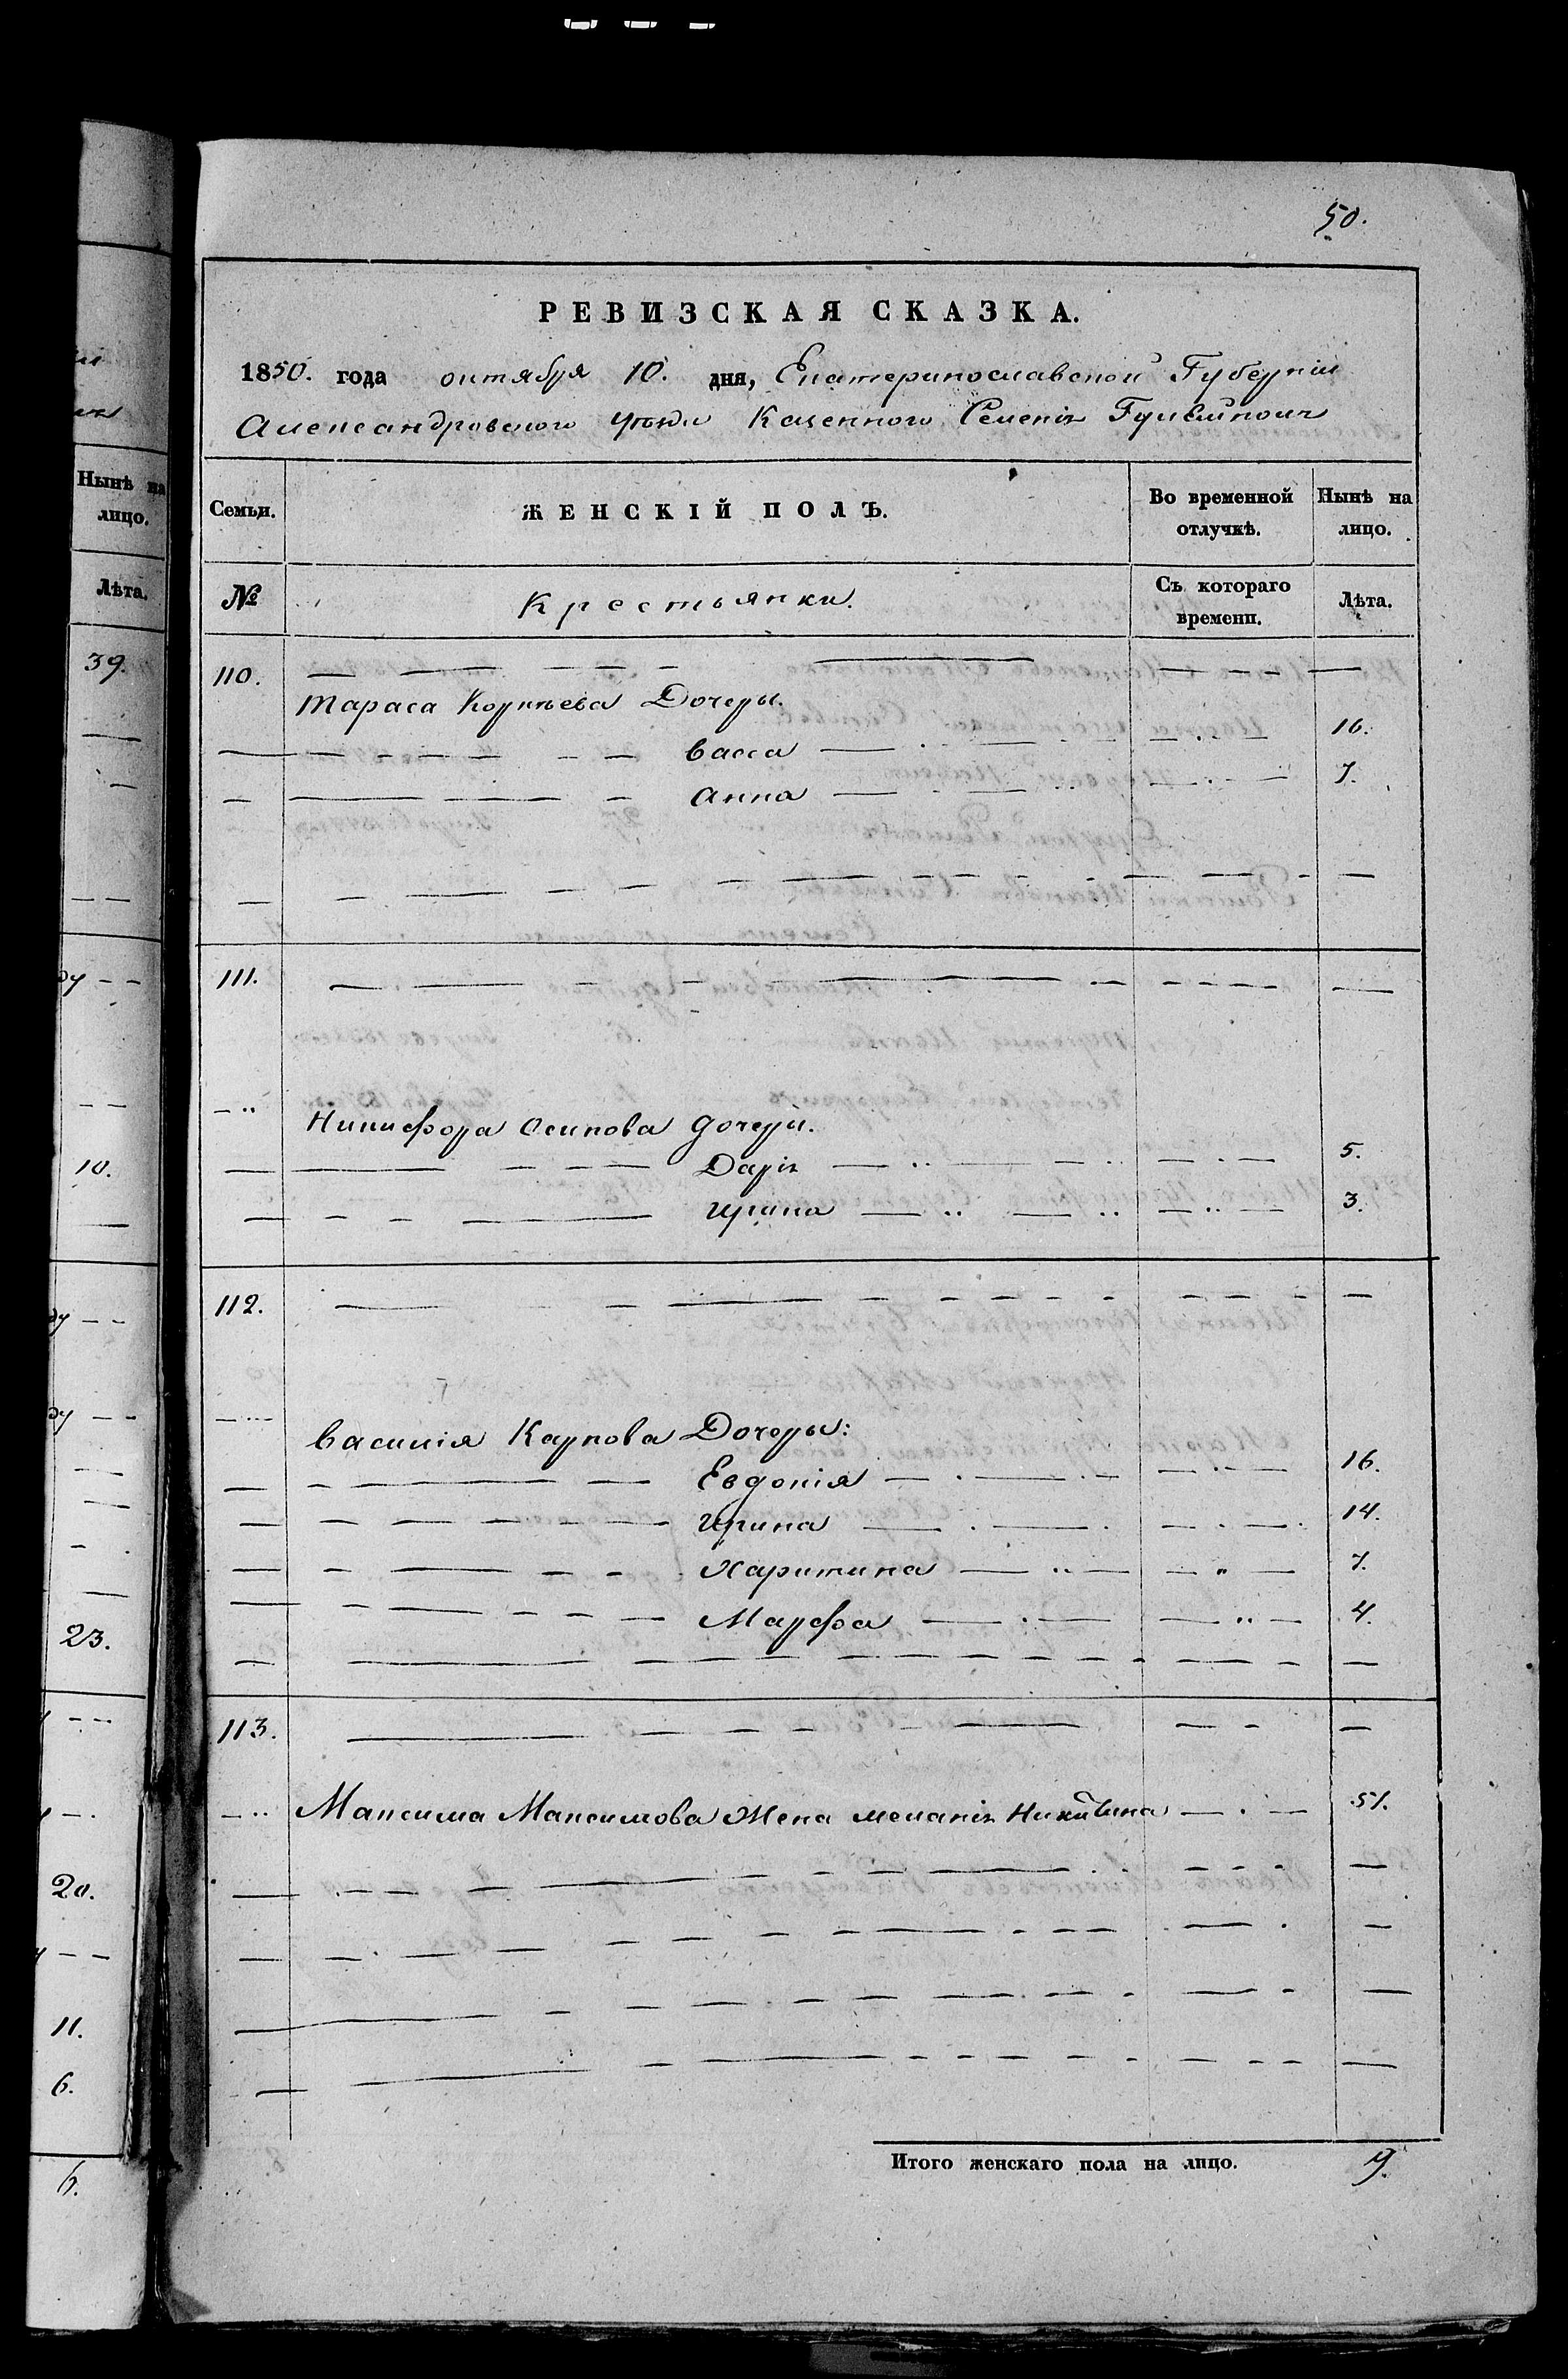 50.
РЕВИЗСКАЯ СКАЗКА.
1850. года октября 10. дня, Екатеринославской Губерніи
Александровскаго уѣзда Казеннаго Селенія
Семьи. ЖЕНСКІЙ ПОЛЪ. Во временной отлучкѣ. Нынѣ на лицо.
№ Крестьянки. Съ котораго времени. Лѣта.
110.
Тараса Корнѣева Дочеры.
Васса 16.
Анна 7.
111.
Никифора Осипова дочеры.
Дарія 5.
Ирина 3.
112.
Василія Карпова Дочеры:
Евдокія 16.
Ирина 14.
Харитина 7.
Марфа 4.
113.
Максима Максимова Жена Меланія Никитина 51.
Итого женскаго пола на лицо. 9.
Нынѣ на
лицо.
Лѣта.
39.
10.
23.
20.
11.
6.
6.